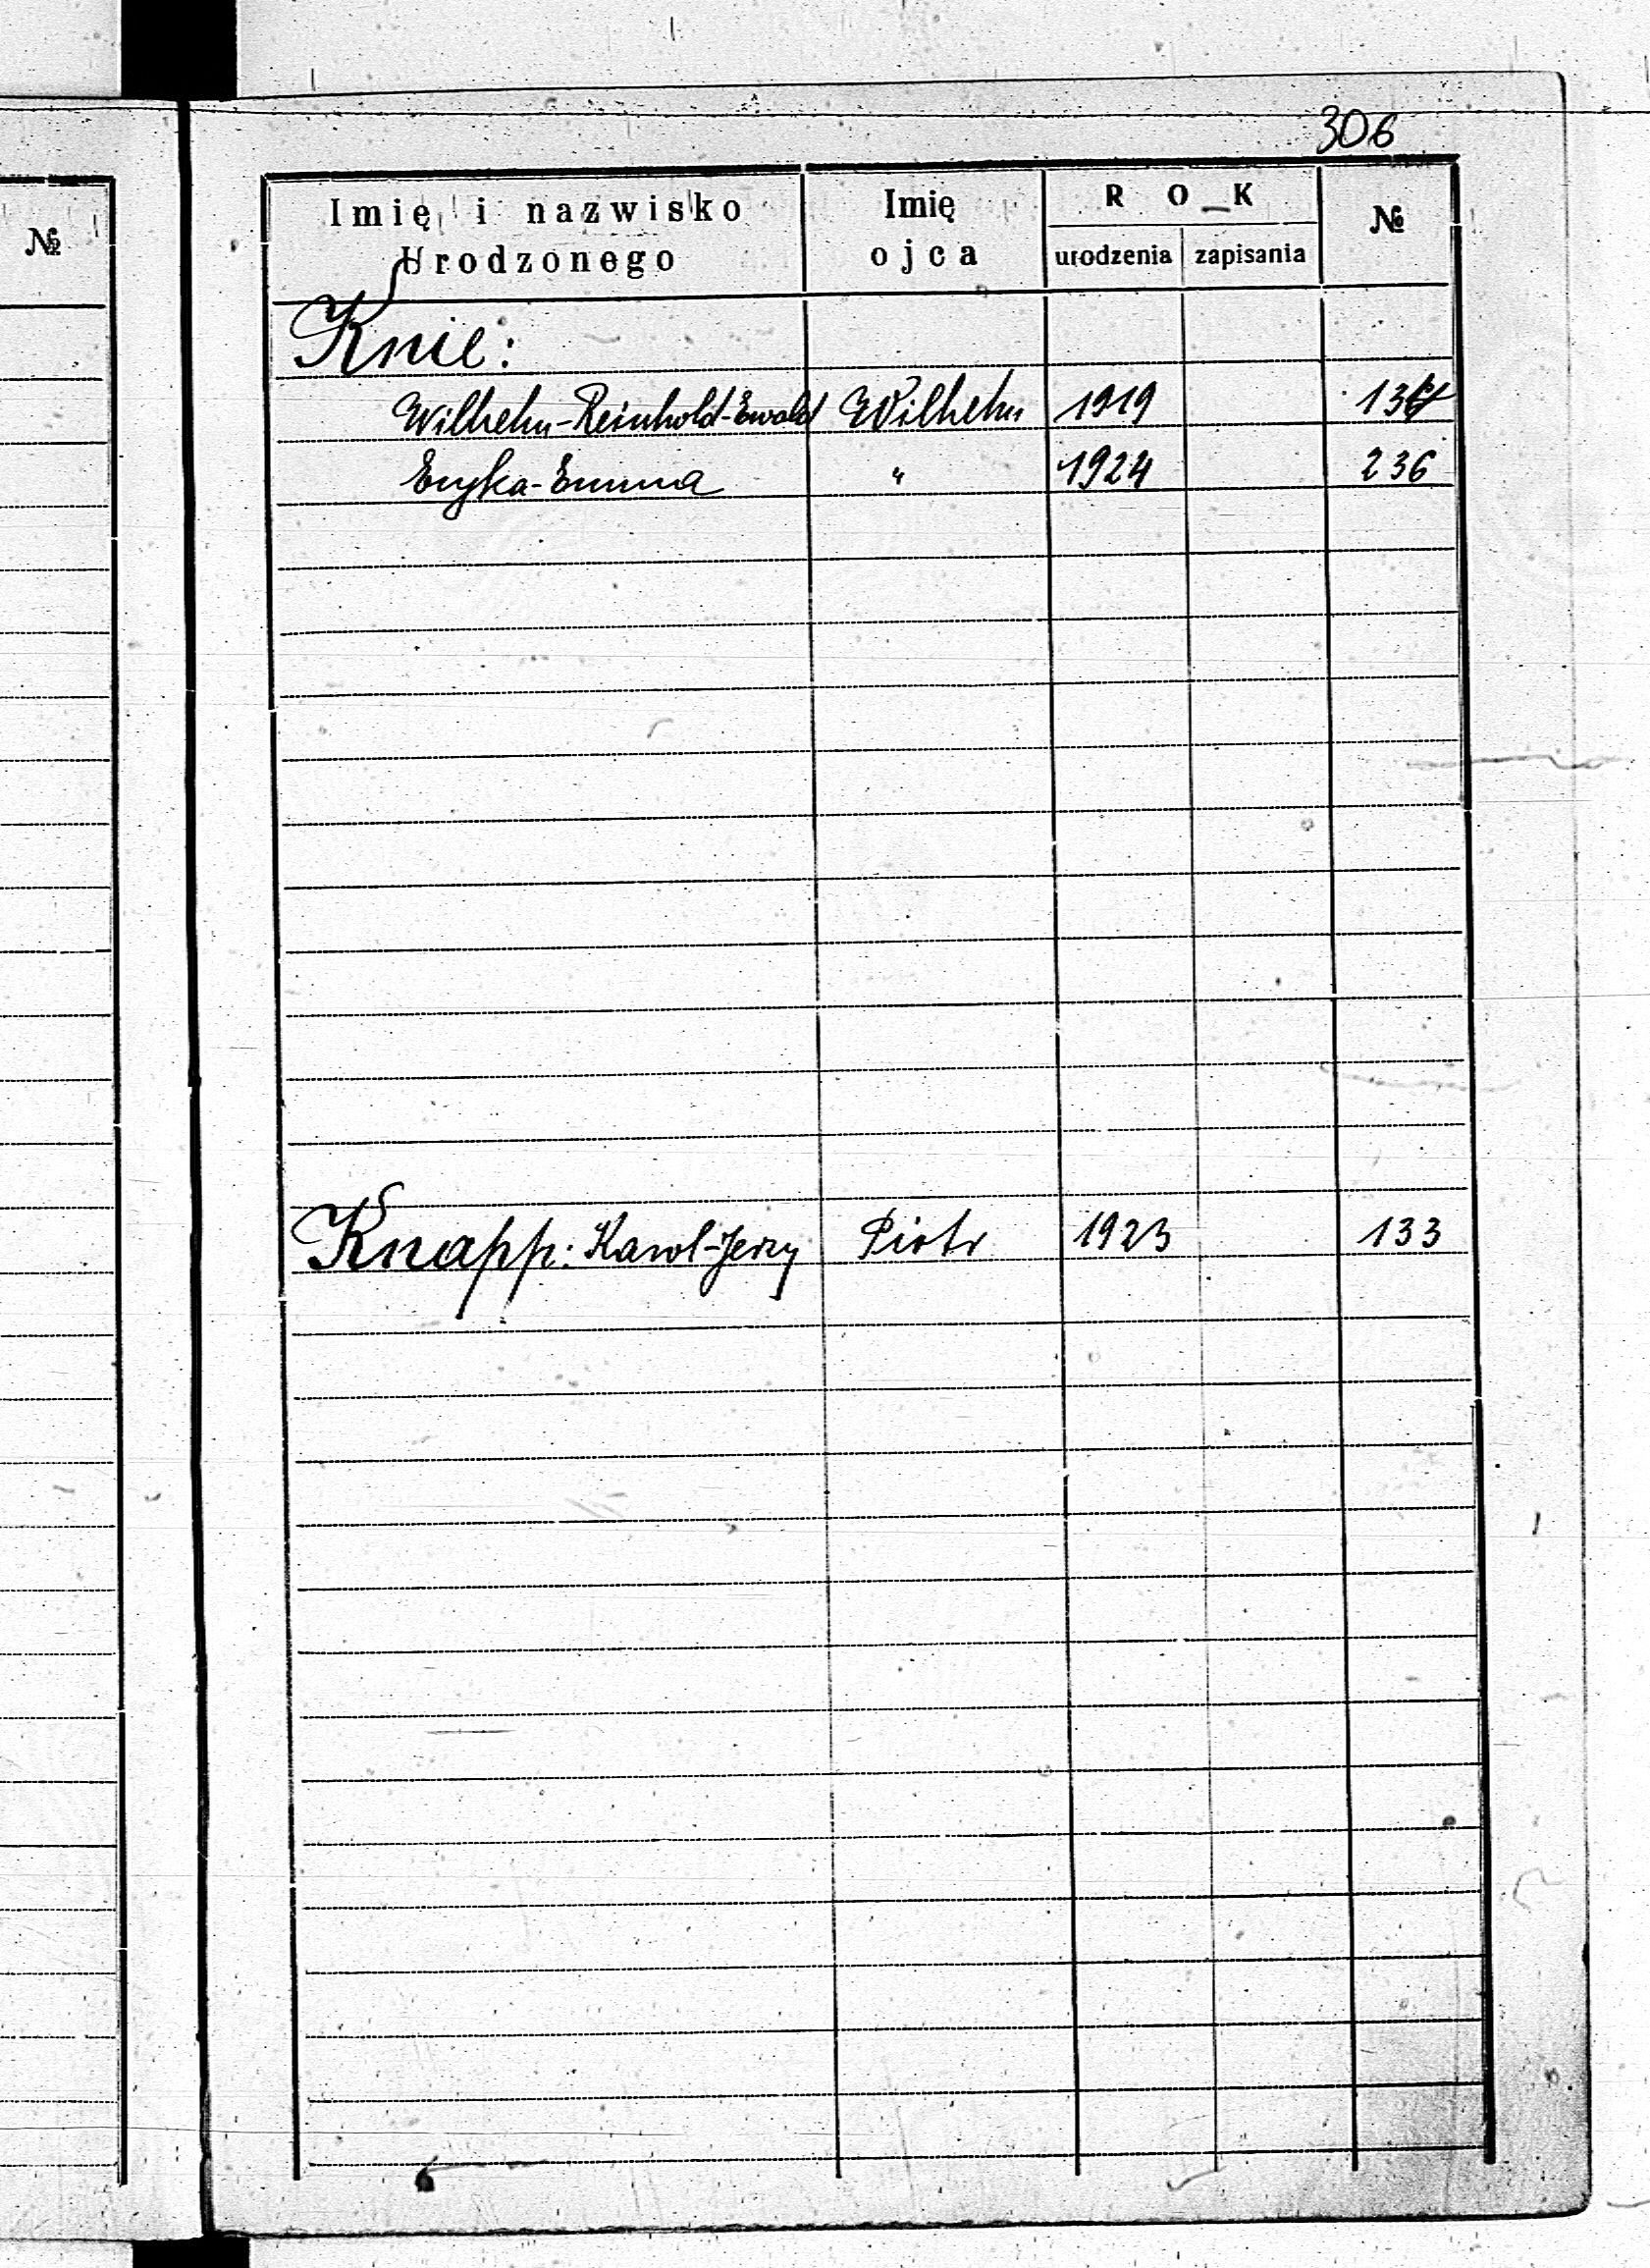 306
№
Imię i nazwisko Urodzonego
Imię ojca
ROK
urodzenia zapisania
№
Knie:
Wilhelm-Reinhold-Ewald Wilhelm 1919
Eryka-Emma " 1924 236
Knapp: Karol-Jerzy Piotr 1923 133